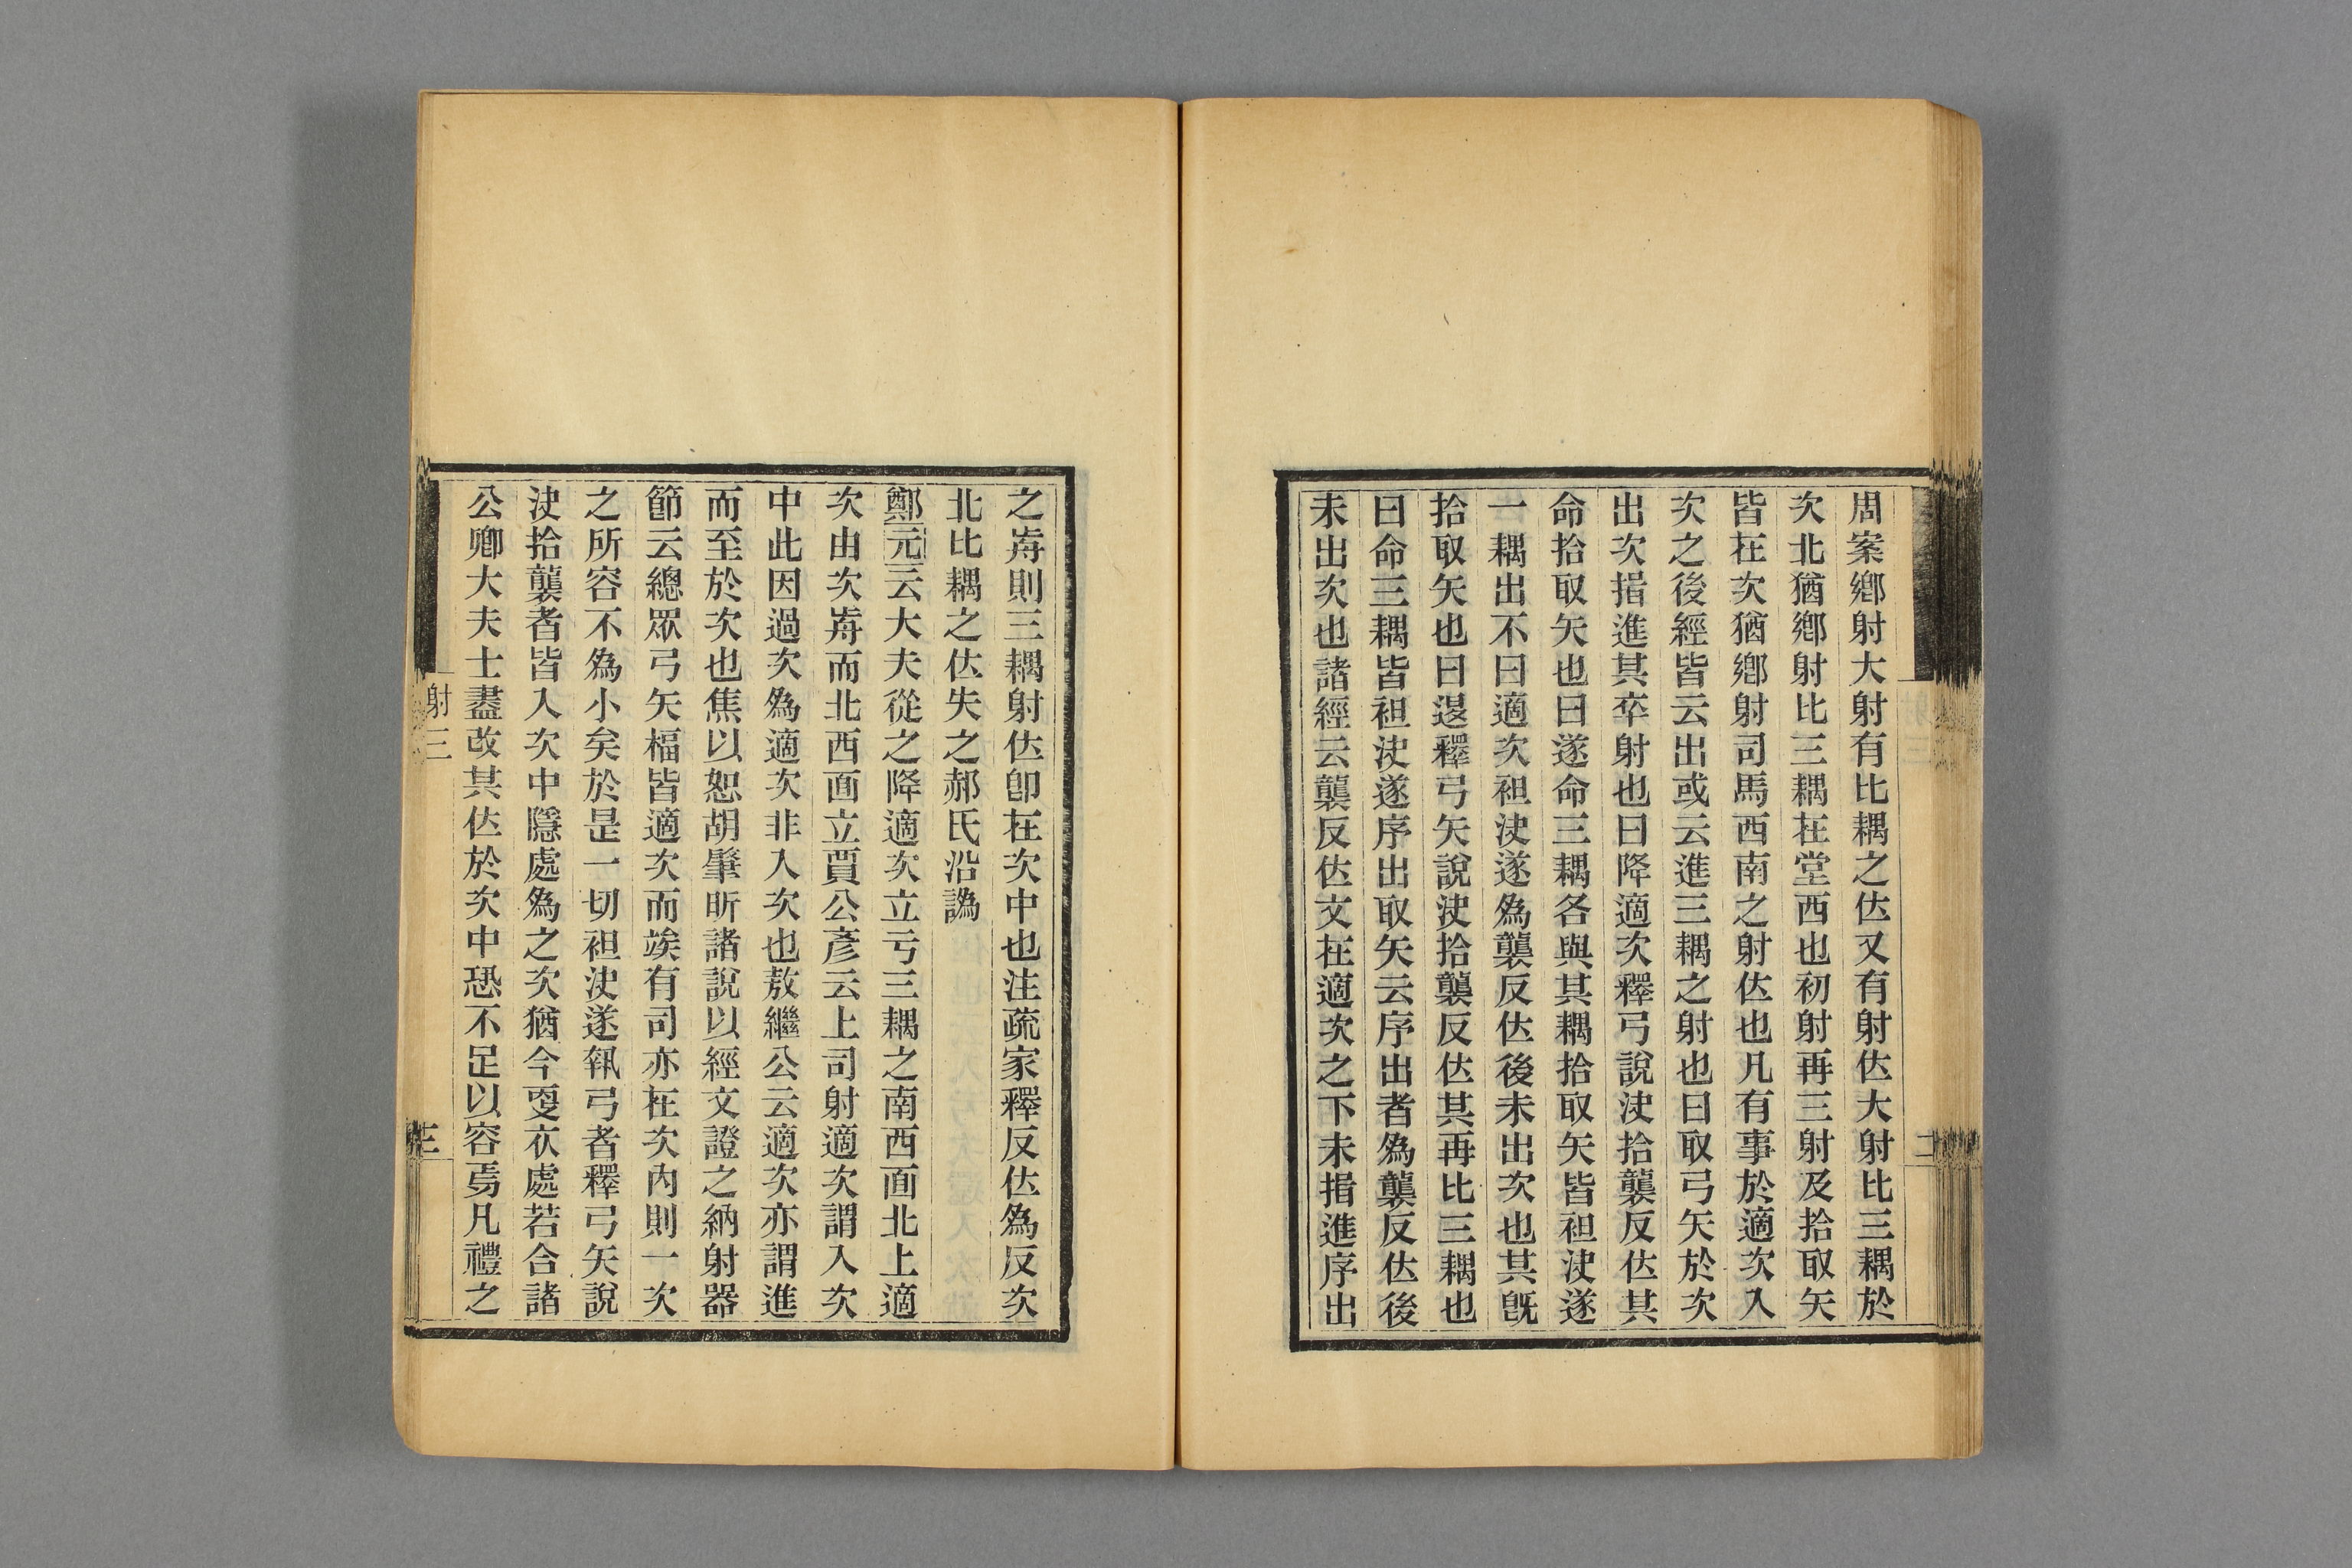 周案鄉射大射有比耦之位又有射位大射比三耦於
次北猶鄉射比三耦在堂西也初射再三射及拾取矢
皆在次猶鄉射司馬西南之射位也凡有事於適次入
次之後經皆云出或云進三耦之射也曰取弓矢於次
出次搢進其卒射也曰降適次釋弓說決拾襲反位其
命拾取矢也曰遂命三耦各與其耦拾取矢皆袒決遂
一耦出不曰適次袒決遂爲襲反位後未出次也其旣
拾取矢也曰退釋弓矢說決拾襲反位其再比三耦也
曰命三耦皆袒決遂序出取矢云序出者爲襲反位後
未出次也諸經云襲反位文在適次之下未搢進序出
之歬則三耦射位卽在次中也注疏家釋反位爲反次
北比耦之位失之郝氏沿譌
鄭元云大夫從之降適次立亏三耦之南西面北上適
次由次歬而北西面立賈公彥云上司射適次謂入次
中此因過次爲適次非入次也敖繼公云適次亦謂進
而至於次也焦以恕胡肇昕諸說以經文證之納射器
節云總眾弓矢楅皆適次而竢有司亦在次內則一次
之所容不爲小矣於是一切袒決遂執弓者釋弓矢說
決拾襲者皆入次中隱處爲之次猶今更衣處若合諸
公卿大夫士盡改其位於次中恐不足以容焉凡禮之
射三